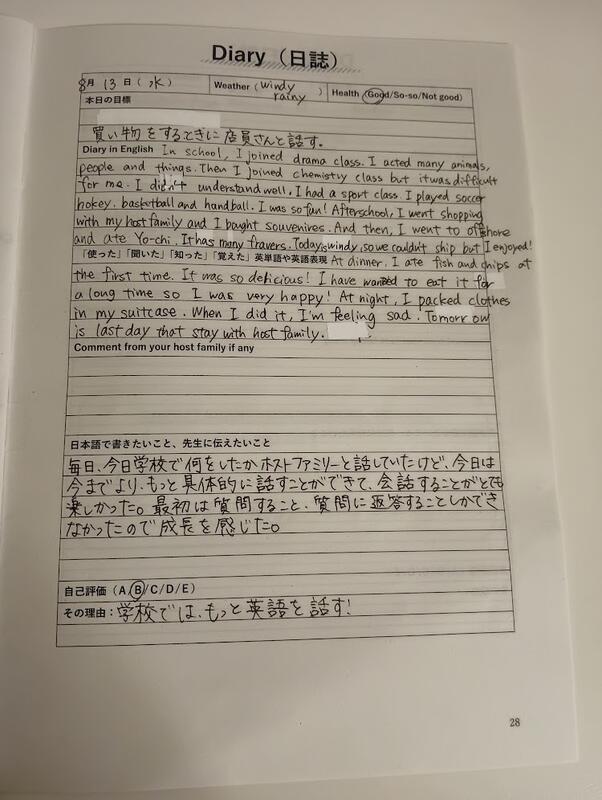 Diary（日誌）
8月 13日（水） Weather（windy rainy） Health（Good/So-so/Not good）
本日の目標
買い物をするときに店員さんと話す。
Diary in English In school, I joined drama class. I acted many animals,
people and things. Then I joined chemistry class but it was difficult
for me. I didn't understand well, I had a sport class. I played soccer
hokey. basketball and handball. I was so fun! Afterschool, I went shopping
with my host family and I bought souvenires. And then, I went to offshore
and ate Yo-chi. It has many fravers. Today is windy, so we couldn't ship but I enjoyed!
「使った」「聞いた」「知った」「覚えた」英単語や英語表現 At dinner, I ate fish and chips at
the first time. It was so delicious! I have wanted to eat it for
a long time so I was very happy! At night, I packed clothes
in my suitcase. When I did it, I'm feeling sad. Tomorrow
is last day that stay with host family.
Comment from your host family if any
日本語で書きたいこと、先生に伝えたいこと
毎日、今日学校で何をしたかホストファミリーと話していたけど、今日は
今までより、もっと具体的に話すことができて、会話することがとても
楽しかった。最初は質問すること、質問に返答することしかでき
なかったので成長を感じた。
自己評価（A/B/C/D/E）
その理由：学校では、もっと英語を話す!
28